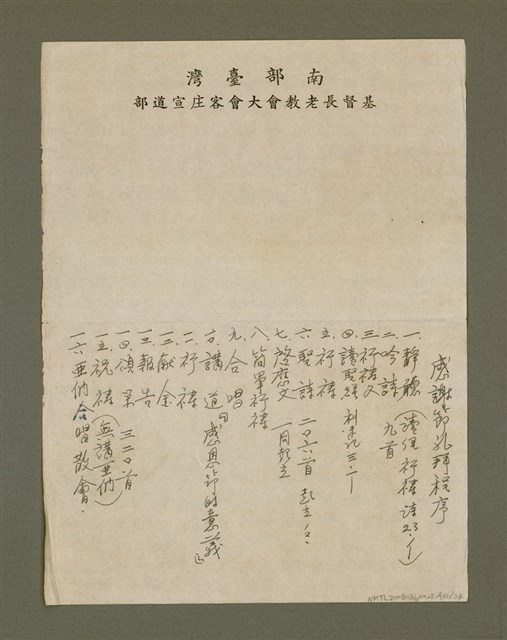 南部臺灣
基督長老教會大會客庄宣道部
感謝節礼拜程序
一、靜聽（讀伲祈禱 詩23.1-）
二、吟詩 九首
三、祈禱文
四、讀聖經 利未記三.1-
五、祈禱
六、聖詩 二〇六首 起立
七、啓應文 一同起立
八、簡單祈禱
九、合唱
十、講道「感恩節的意義」
一一、祈禱
一二、献金
一三、報告
一四、頌榮 三二〇首
一五、祝禱（無講亞們）
一六、亞們合唱散會.